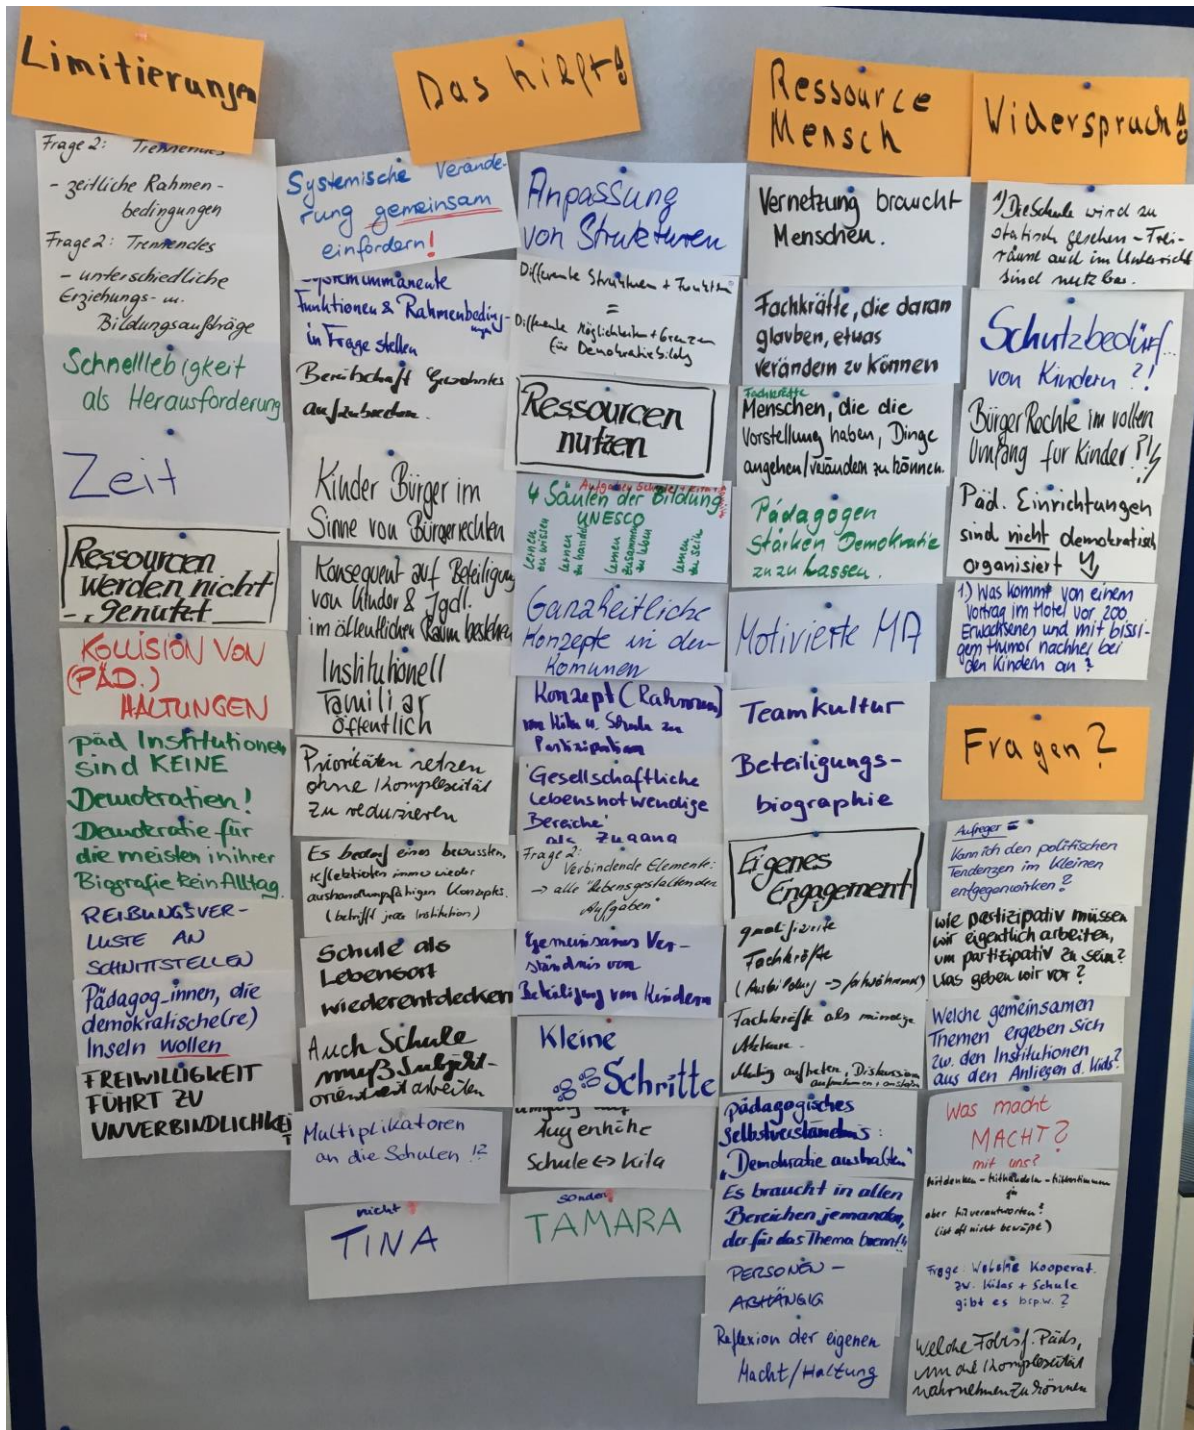 Limitierungen
Frage 2: Trennendes
- zeitliche Rahmen-
bedingungen
Frage 2: Trennendes
- unterschiedliche
Erziehungs- u.
Bildungsaufträge
Schnelllebigkeit
als Herausforderung
Zeit
Ressourcen
werden nicht
genutzt
KOLLISION VON
(PÄD.)
HALTUNGEN
päd Institutionen
sind KEINE
Demokratien!
Demokratie für
die meisten in ihrer
Biografie kein Alltag.
REIBUNGSVER-
LUSTE AN
SCHNITTSTELLEN
Pädagog_innen, die
demokratische(re)
Inseln wollen
FREIWILLIGKEIT
FÜHRT ZU
UNVERBINDLICHKEIT
Das hilft!
Systemische Verände-
rung gemeinsam
einfordern!
Systemimmanente
Funktionen & Rahmenbeding-
ungen
in Frage stellen
Bereitschaft Gewohntes
aufzubrechen.
Kinder Bürger im
Sinne von Bürgerrechten
Konsequent auf Beteiligung
von Kinder & Jgdl.
im öffentlichen Raum bestehen
Institutionell
Familiar
öffentlich
Prioritäten setzen
ohne Komplexität
zu reduzieren
Es bedarf eines bewussten,
reflektierten immer wieder
aushandlungsfähigen Konzepts.
(betrifft jede Institution)
Schule als
Lebensort
wiederentdecken
Auch Schule
muß Subjekt-
orientiert arbeiten
Multiplikatoren
an die Schulen !?
nicht
TINA
Anpassung
von Strukturen
Differente Strukturen + Funktion
=
Differente Möglichkeiten + Grenzen
für Demokratiebildg
Ressourcen
nutzen
Aufgaben Schule + Kita +
4 Säulen der Bildung
UNESCO
lernen zu wissen
lernen zu handeln
lernen zusammen zu leben
lernen zu sein
Ganzheitliche
Konzepte in den
Komunen
Konzept (Rahmen)
von Kita u. Schule zu
Partizipation
'Gesellschaftliche
lebensnotwendige
Bereiche'
als Zugang
Frage 2:
Verbindende Elemente:
→ alle "lebensgestaltenden
Aufgaben"
Gemeinsames Ver-
ständnis von
Beteiligung von Kindern
Kleine
Schritte
Umgang auf
Augenhöhe
Schule ↔ Kita
sondern
TAMARA
Ressource
Mensch
Vernetzung braucht
Menschen.
Fachkräfte, die daran
glauben, etwas
verändern zu können
Fachkräfte
Menschen, die die
Vorstellung haben, Dinge
angehen/verändern zu können.
Pädagogen
stärken Demokratie
zuzulassen.
Motivierte MA
Teamkultur
Beteiligungs-
biographie
Eigenes
Engagement
qualifizierte
Fachkräfte
(Ausbildung →
Fachkräfte als mündige
Akteure.
Mutig auftreten, Diskussion
aufnehmen,
pädagogisches
Selbstverständnis:
"Demokratie aushalten"
Es braucht in allen
Bereichen jemanden,
der für das Thema brennt!
PERSONEN -
ABHÄNGIG
Reflexion der eigenen
Macht/Haltung
Widerspruch!
1) Die Schule wird zu
statisch gesehen - Frei-
räume auch im Unterricht
sind nutzbar.
Schutzbedürf...
von Kindern ?!
Bürger Rechte im vollen
Umfang für Kinder ?!
Päd. Einrichtungen
sind nicht demokratisch
organisiert
1.) Was kommt von einem
Vortrag im Hotel vor 200
Erwachsenen und mit bissi-
gem Humor nachher bei
den Kindern an ?
Fragen ?
Aufreger =
Kann ich den politischen
Tendenzen im Kleinen
entgegenwirken ?
wie partizipativ müssen
wir eigentlich arbeiten,
um partizipativ zu sein?
Was geben wir vor ?
Welche gemeinsamen
Themen ergeben sich
zw. den Institutionen
aus den Anliegen d. Kids?
Was macht
MACHT ?
mit uns?
Mitdenken - Mithandeln - Mitbestimmen
ja
aber Mitverantworten?
(ist oft nicht bewußt)
Frage: Welche Kooperat.
zw. Kitas + Schule
gibt es bspw. ?
Welche Fobis f. Päds,
um die Komplexität
wahrnehmen zu können